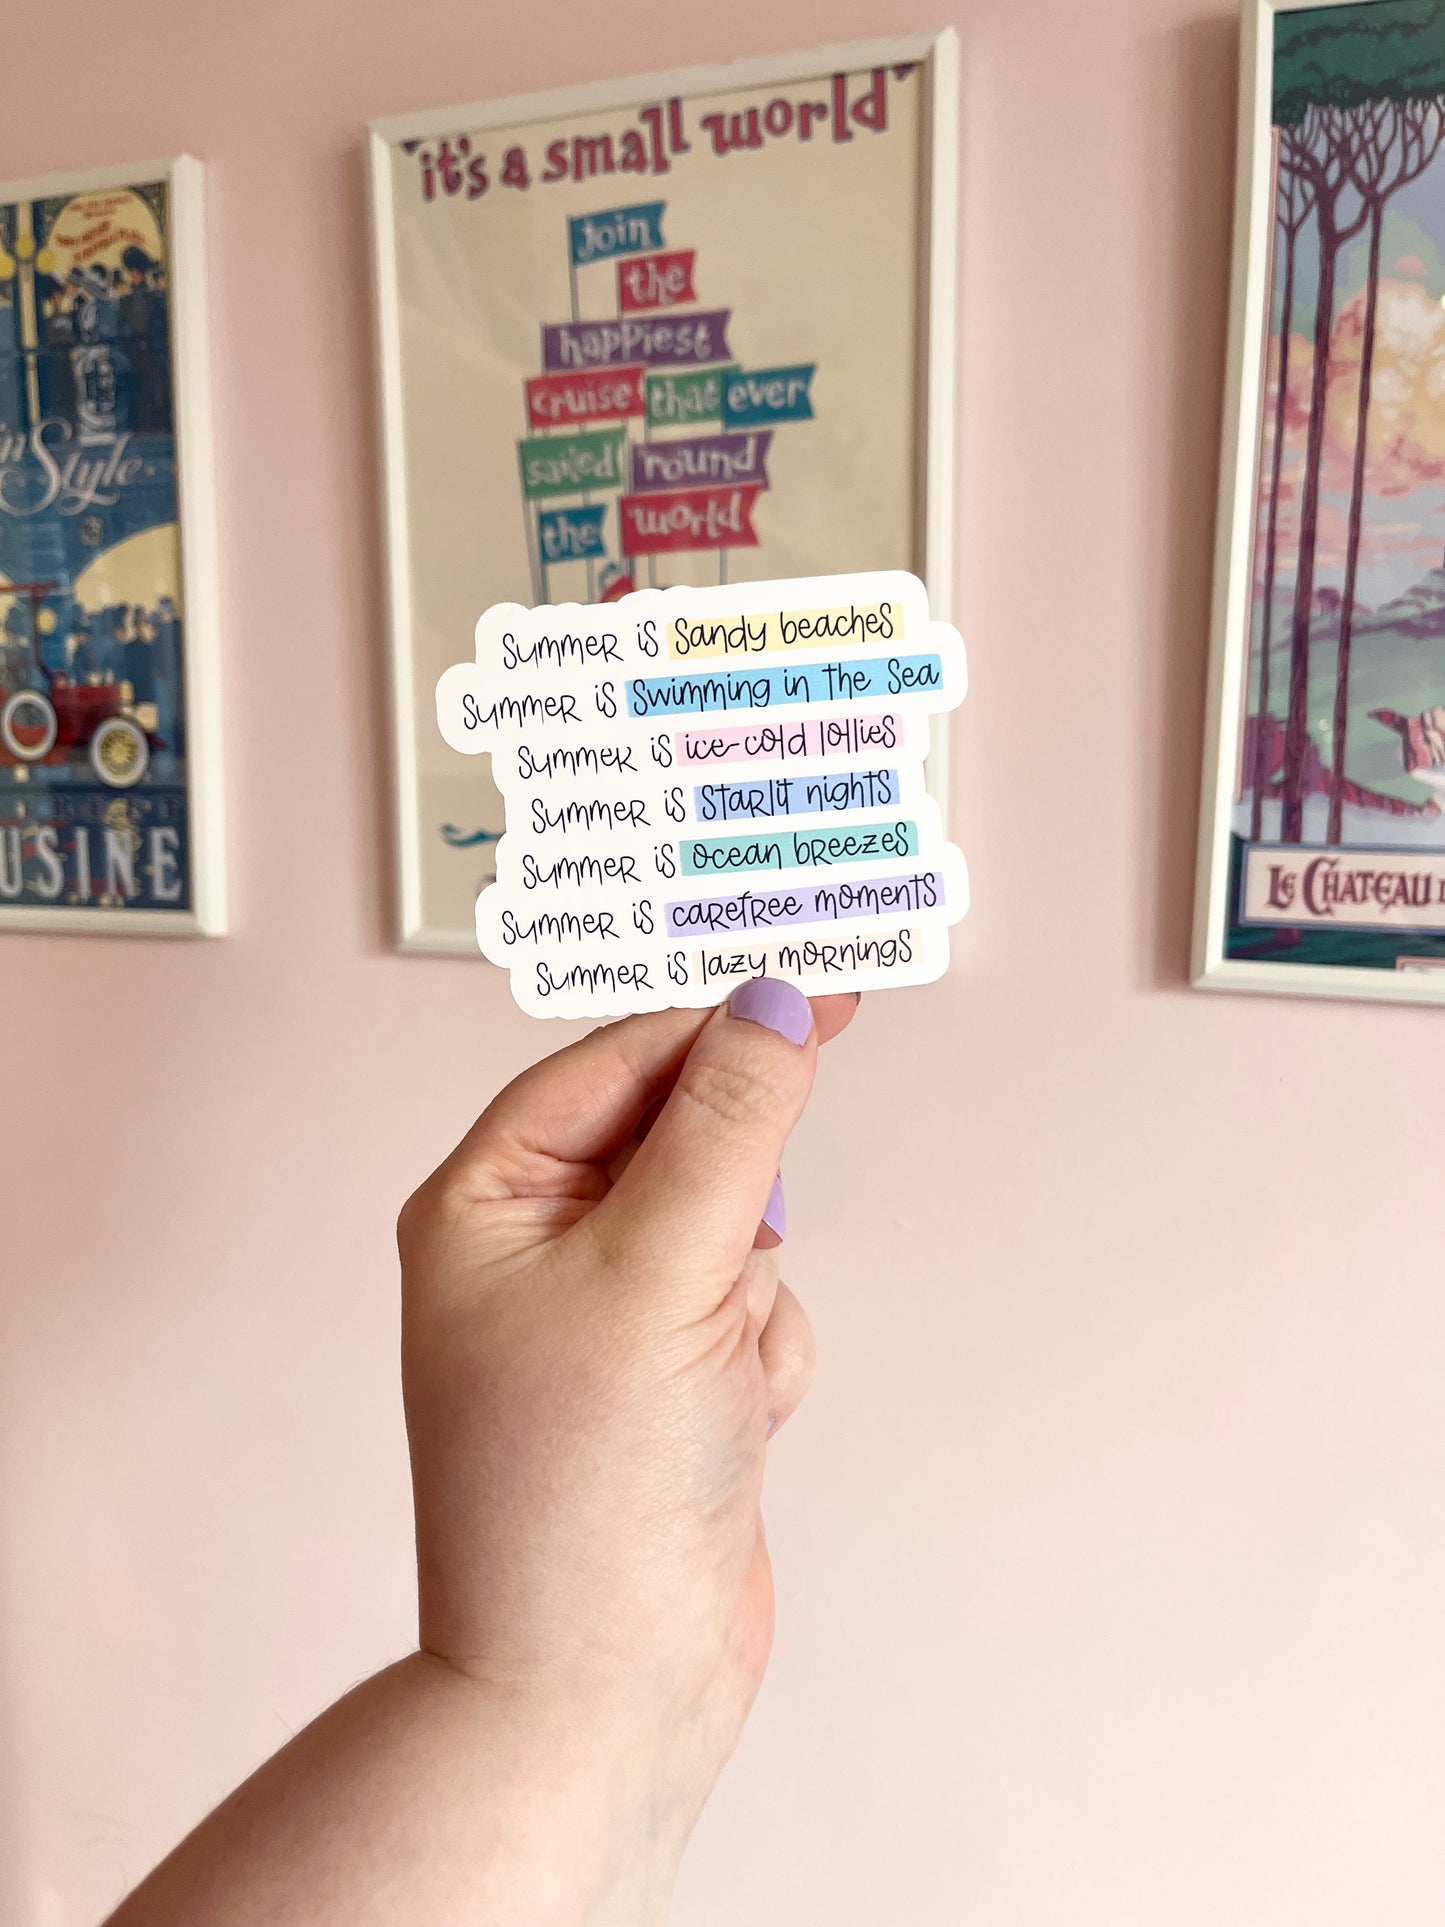 it's a small world
join
the
happiest
cruise that ever
sailed 'round
the world
in Style
USINE
LE CHATEAU
Summer is Sandy beaches
Summer is Swimming in the Sea
Summer is ice-cold lollies
Summer is Starlit nights
Summer is ocean breezes
Summer is carefree moments
Summer is lazy mornings